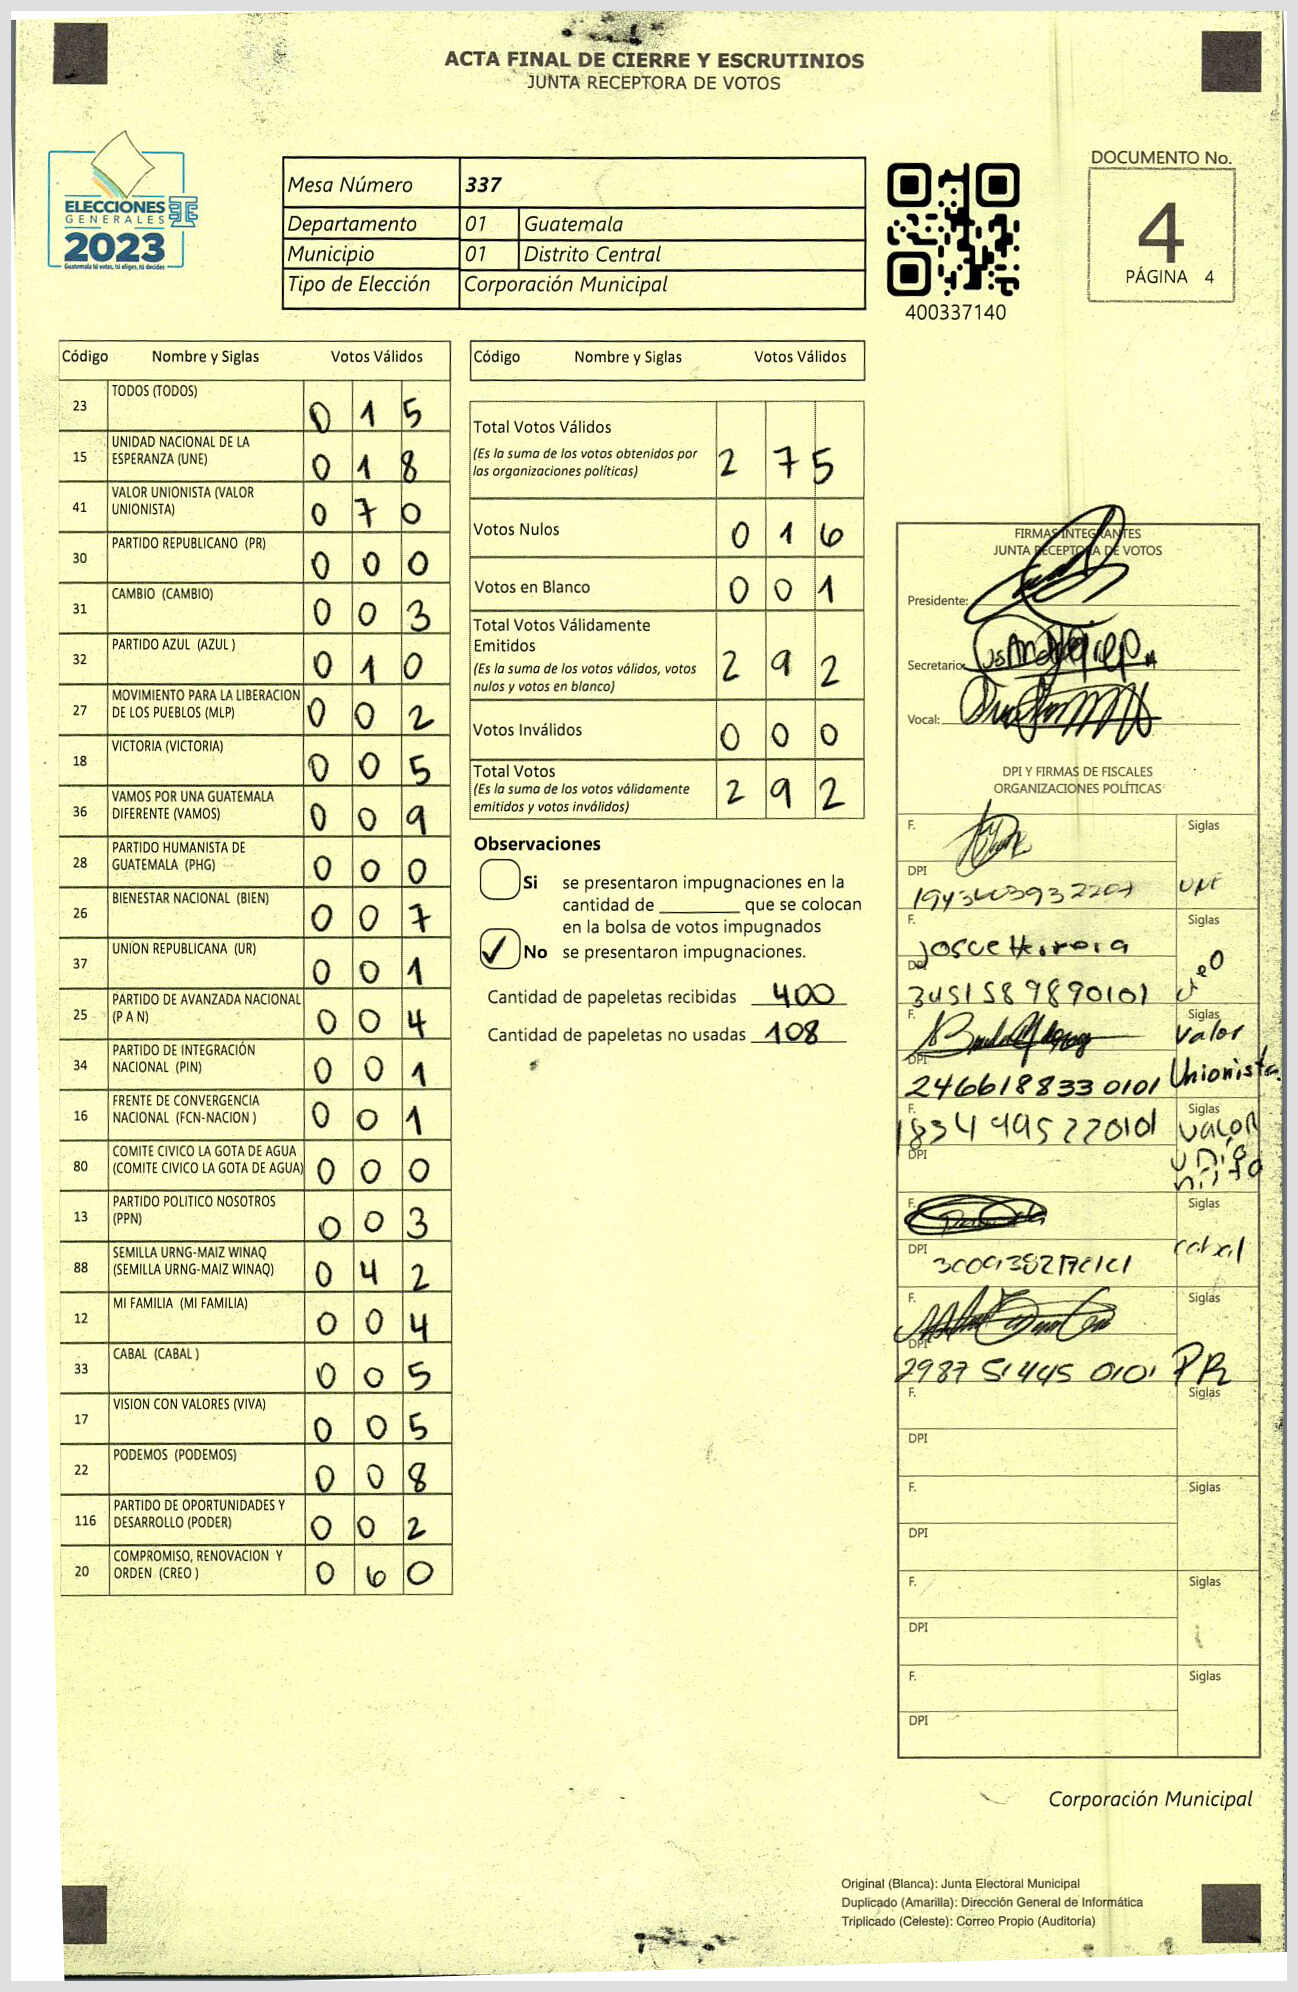 ACTA FINAL DE CIERRE Y ESCRUTINIOS
JUNTA RECEPTORA DE VOTOS
ELECCIONES
GENERALES
2023
Guatemala tú votas, tú eliges, tú decides
Mesa Número 337
Departamento 01 Guatemala
Municipio 01 Distrito Central
Tipo de Elección Corporación Municipal
400337140
DOCUMENTO No.
4
PÁGINA 4
Código Nombre y Siglas Votos Válidos
23 TODOS (TODOS) 0 1 5
15 UNIDAD NACIONAL DE LA
ESPERANZA (UNE) 0 1 8
41 VALOR UNIONISTA (VALOR
UNIONISTA) 0 7 0
30 PARTIDO REPUBLICANO (PR) 0 0 0
31 CAMBIO (CAMBIO) 0 0 3
32 PARTIDO AZUL (AZUL ) 0 1 0
27 MOVIMIENTO PARA LA LIBERACION
DE LOS PUEBLOS (MLP) 0 0 2
18 VICTORIA (VICTORIA) 0 0 5
36 VAMOS POR UNA GUATEMALA
DIFERENTE (VAMOS) 0 0 9
28 PARTIDO HUMANISTA DE
GUATEMALA (PHG) 0 0 0
26 BIENESTAR NACIONAL (BIEN) 0 0 7
37 UNION REPUBLICANA (UR) 0 0 1
25 PARTIDO DE AVANZADA NACIONAL
(P A N) 0 0 4
34 PARTIDO DE INTEGRACIÓN
NACIONAL (PIN) 0 0 1
16 FRENTE DE CONVERGENCIA
NACIONAL (FCN-NACION ) 0 0 1
80 COMITE CIVICO LA GOTA DE AGUA
(COMITE CIVICO LA GOTA DE AGUA) 0 0 0
13 PARTIDO POLITICO NOSOTROS
(PPN) 0 0 3
88 SEMILLA URNG-MAIZ WINAQ
(SEMILLA URNG-MAIZ WINAQ) 0 4 2
12 MI FAMILIA (MI FAMILIA) 0 0 4
33 CABAL (CABAL ) 0 0 5
17 VISION CON VALORES (VIVA) 0 0 5
22 PODEMOS (PODEMOS) 0 0 8
116 PARTIDO DE OPORTUNIDADES Y
DESARROLLO (PODER) 0 0 2
20 COMPROMISO, RENOVACION Y
ORDEN (CREO ) 0 6 0
Código Nombre y Siglas Votos Válidos
Total Votos Válidos
(Es la suma de los votos obtenidos por
las organizaciones políticas) 2 7 5
Votos Nulos 0 1 6
Votos en Blanco 0 0 1
Total Votos Válidamente
Emitidos
(Es la suma de los votos válidos, votos
nulos y votos en blanco) 2 9 2
Votos Inválidos 0 0 0
Total Votos
(Es la suma de los votos válidamente
emitidos y votos inválidos) 2 9 2
Observaciones
Si se presentaron impugnaciones en la
cantidad de ________ que se colocan
en la bolsa de votos impugnados
✓ No se presentaron impugnaciones.
Cantidad de papeletas recibidas 400
Cantidad de papeletas no usadas 108
FIRMAS INTEGRANTES
JUNTA RECEPTORA DE VOTOS
Presidente:
Secretario:
Vocal:
DPI Y FIRMAS DE FISCALES
ORGANIZACIONES POLÍTICAS
F. Siglas
DPI UNE
F. Josue Herrera Siglas
DPI 3451589890101 creo
F. Siglas Valor
DPI 2466188330101 Unionista
F. 18344995220101 Siglas Valor
DPI
F. Siglas
DPI cabal
F. Siglas
DPI 2987514450101 PR
F. Siglas
DPI
F. Siglas
DPI
F. Siglas
DPI
F. Siglas
DPI
Corporación Municipal
Original (Blanca): Junta Electoral Municipal
Duplicado (Amarilla): Dirección General de Informática
Triplicado (Celeste): Correo Propio (Auditoría)